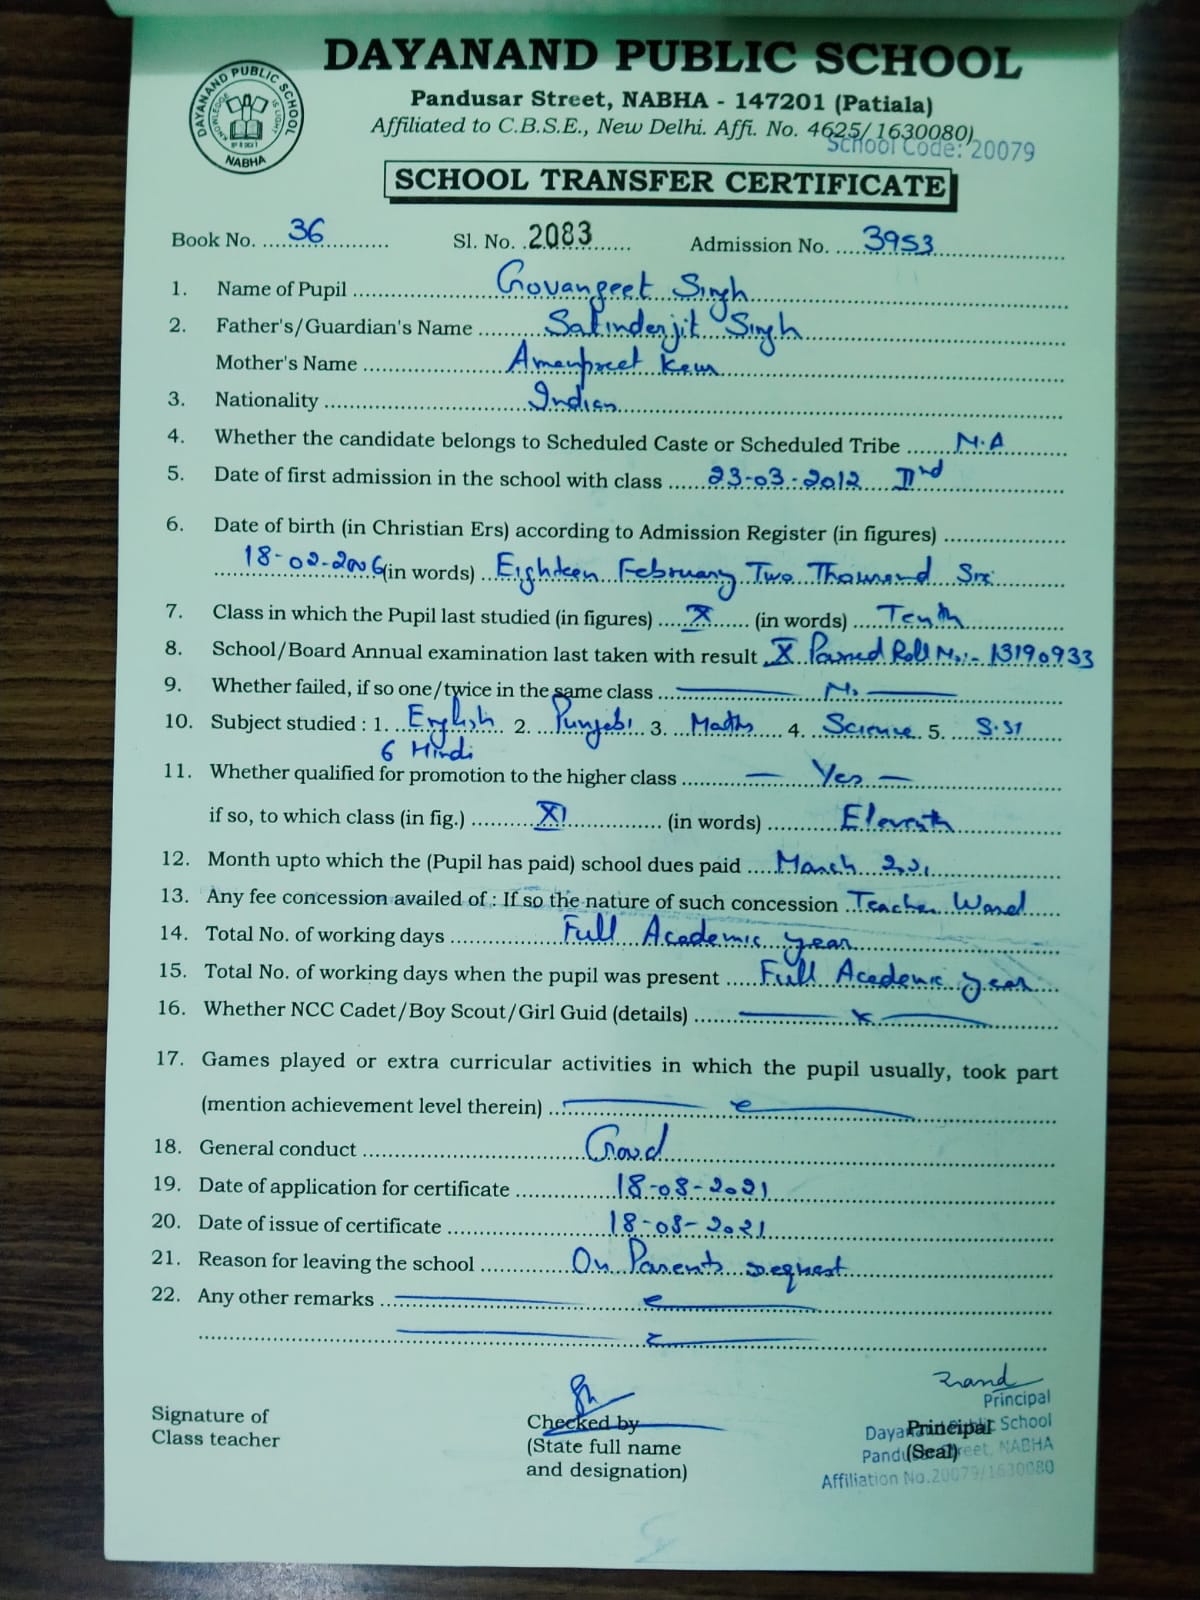 DAYANAND PUBLIC SCHOOL
DAYANAND PUBLIC SCHOOL
KNOWLEDGE IS LIGHT
NABHA
Pandusar Street, NABHA - 147201 (Patiala)
Affiliated to C.B.S.E., New Delhi. Affi. No. 4625/1630080)
School Code: 20079
SCHOOL TRANSFER CERTIFICATE
Book No. 36 Sl. No. 2083 Admission No. 3953
1. Name of Pupil Govangeet Singh
2. Father's/Guardian's Name Satinderjit Singh
Mother's Name Amanpreet Kaur
3. Nationality Indian
4. Whether the candidate belongs to Scheduled Caste or Scheduled Tribe N.A
5. Date of first admission in the school with class 23-03-2012 IInd
6. Date of birth (in Christian Ers) according to Admission Register (in figures)
18-02-2006 (in words) Eighteen February Two Thousand Six
7. Class in which the Pupil last studied (in figures) X (in words) Tenth
8. School/Board Annual examination last taken with result X Passed Roll No:- 13190933
9. Whether failed, if so one/twice in the same class No
10. Subject studied : 1. English 2. Punjabi 3. Maths 4. Science 5. S.St
6 Hindi
11. Whether qualified for promotion to the higher class Yes
if so, to which class (in fig.) XI (in words) Eleventh
12. Month upto which the (Pupil has paid) school dues paid March 2021
13. Any fee concession availed of : If so the nature of such concession Teacher Ward
14. Total No. of working days Full Academic year
15. Total No. of working days when the pupil was present Full Academic year
16. Whether NCC Cadet/Boy Scout/Girl Guid (details)
17. Games played or extra curricular activities in which the pupil usually, took part
(mention achievement level therein)
18. General conduct Good
19. Date of application for certificate 18-08-2021
20. Date of issue of certificate 18-08-2021
21. Reason for leaving the school On Parents request
22. Any other remarks
Signature of
Class teacher
Checked by
(State full name
and designation)
Principal
(Seal)
Principal
Dayanand Public School
Pandusar Street, NABHA
Affiliation No.20079/1630080